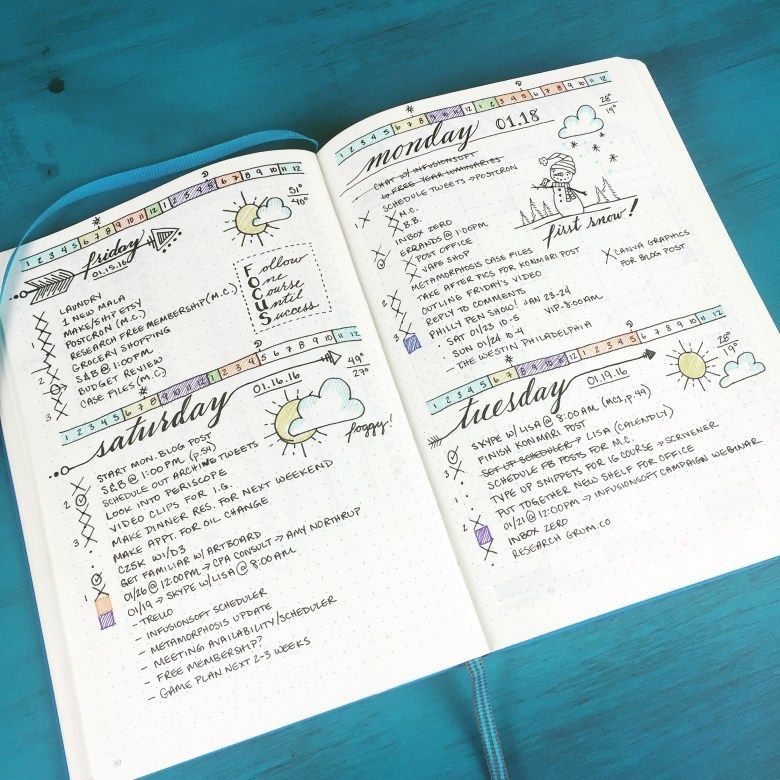 1 2 3 4 5 6 7 8 9 10 11 12 1 2 3 4 5 6 7 8 9 10 11 12
friday
01.15.16
51°
40°
LAUNDRY
1 NEW MALA
MAKE/SHIP ETSY
POSTCRON (M.C.)
RESEARCH FREE MEMBERSHIP (M.C.)
GROCERY SHOPPING
S&B @ 1:00PM
BUDGET REVIEW
CASE FILES (M.C.)
2
3
Follow
One
Course
Until
Success
1 2 3 4 5 6 7 8 9 10 11 12 1 2 3 4 5 6 7 8 9 10 11 12
saturday
01.16.16
49°
27°
foggy!
START MON. BLOG POST
S&B @ 1:00PM (p.54)
SCHEDULE OUT ARCHIVE TWEETS
LOOK INTO PERISCOPE
VIDEO CLIPS FOR I.G.
MAKE DINNER RES. FOR NEXT WEEKEND
MAKE APPT. FOR OIL CHANGE
C25K W1/D3
GET FAMILIAR W/ARTBOARD
01/26 @ 12:00PM → CPA CONSULT → AMY NORTHRUP
01/19 → SKYPE W/LISA @ 8:00AM
- TRELLO
- INFUSIONSOFT SCHEDULER
- METAMORPHOSIS UPDATE
- MEETING AVAILABILITY/SCHEDULER
- FREE MEMBERSHIP?
- GAME PLAN NEXT 2-3 WEEKS
2
3
1
50
1 2 3 4 5 6 7 8 9 10 11 12 1 2 3 4 5 6 7 8 9 10 11 12
monday
01.18
28°
19°
CHAT W/ INFUSIONSOFT
↳ FREE YEAR LUMINARIES
SCHEDULE TWEETS → POSTCRON
M.C.
B.B.
INBOX ZERO
ERRANDS @ 1:00PM
POST OFFICE
VAPE SHOP
METAMORPHOSIS CASE FILES
TAKE AFTER PICS FOR KONMARI POST
OUTLINE FRIDAY'S VIDEO
REPLY TO COMMENTS
PHILLY PEN SHOW! JAN 23-24
- SAT 01/23 10-5 VIP-8:00AM
- SUN 01/24 10-4
- THE WESTIN PHILADELPHIA
1
2
3
first snow!
X CANVA GRAPHICS
FOR BLOG POST
1 2 3 4 5 6 7 8 9 10 11 12 1 2 3 4 5 6 7 8 9 10 11 12
tuesday
01.19.16
28°
19°
SKYPE W/LISA @ 8:00AM (MC1, p.44)
FINISH KONMARI POST
SET UP SCHEDULER → LISA (CALENDLY)
SCHEDULE FB POSTS FOR M.C.
TYPE UP SNIPPETS FOR IG COURSE → SCRIVENER
PUT TOGETHER NEW SHELF FOR OFFICE
01/21 @ 12:00PM → INFUSIONSOFT CAMPAIGN WEBINAR
INBOX ZERO
RESEARCH GRUM.CO
3
1